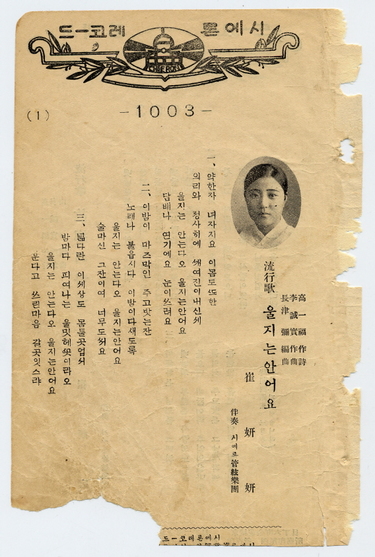 시에론 레코ー드
CHIERON
(1)
-1003-
流行歌 울지는안어요
高一福作詩
李誠實作曲
長津彌編曲
崔姸姸
伴奏 시에론管絃樂團
一、약한자 녀자지요 이몸도또한
의리와 정사회에
울지는 안는다오 울지는안어요
담배나 연기에요 눈이쓰려요
二、이밤이 마즈막인 주고밧는잔
노래나 불읍시다 이밤이다새도록
울지는 안는다오 울지는안어요
술마신 그잔이여 너무도써요
三、넓다란 이세상도 몸둘곳업서
밤마다 피여나는
울지는 안는다오 울지는안어요
운다고 쓰린마음 갈곳잇스랴
시에론레코ー드